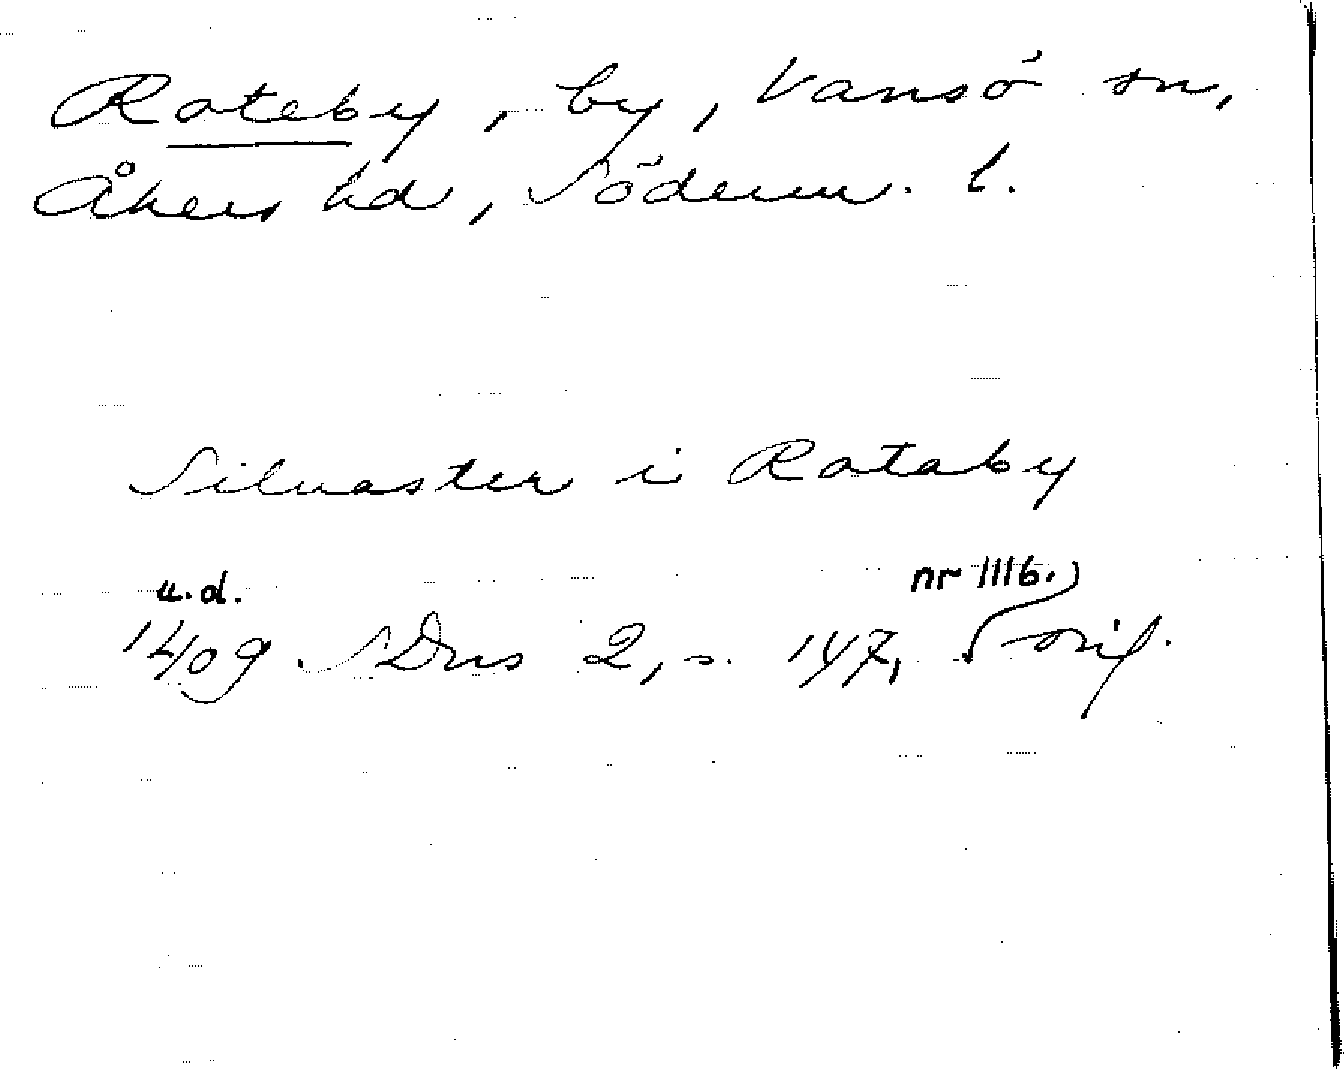 Rateby, by, Vansö sn,
Åkers hd, Söderm. l.
Siluaster i Rataby
u.d. nr 1116.
1409 SDns 2, s. 147, orig.